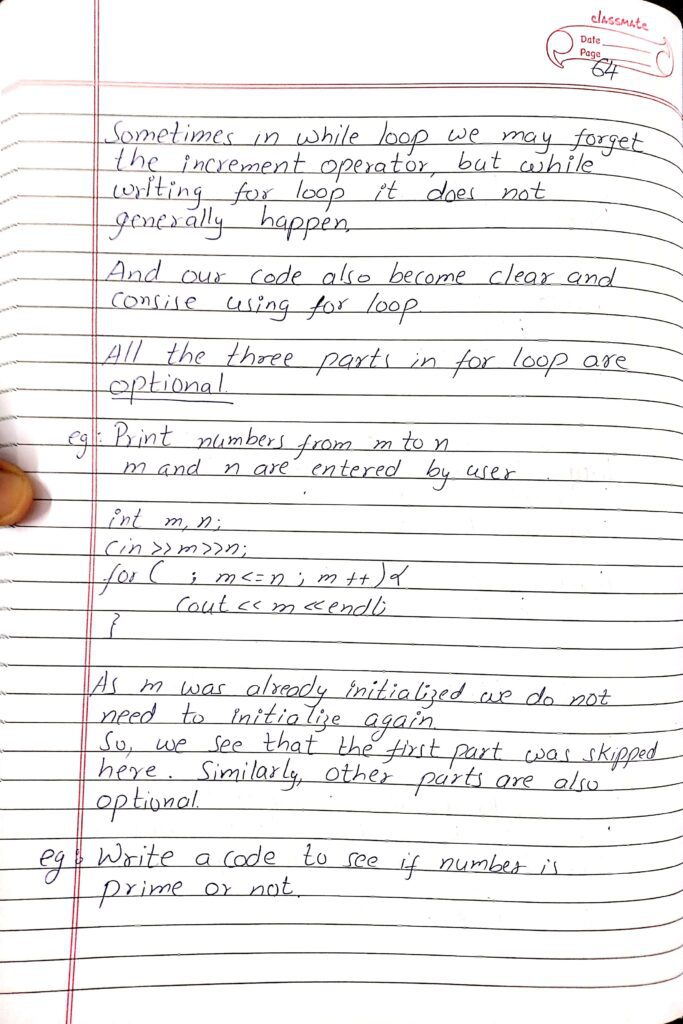 classmate
Date
Page
64
Sometimes in while loop we may forget
the increment operator, but while
writing for loop it does not
generally happen.
And our code also become clear and
consise using for loop.
All the three parts in for loop are
optional.
eg: Print numbers from m to n
m and n are entered by user.
int m, n;
cin >> m >> n;
for ( ; m <= n ; m ++) {
cout << m << endl;
}
As m was already initialized we do not
need to initialize again
So, we see that the first part was skipped
here. Similarly, other parts are also
optional.
eg: Write a code to see if number is
prime or not.